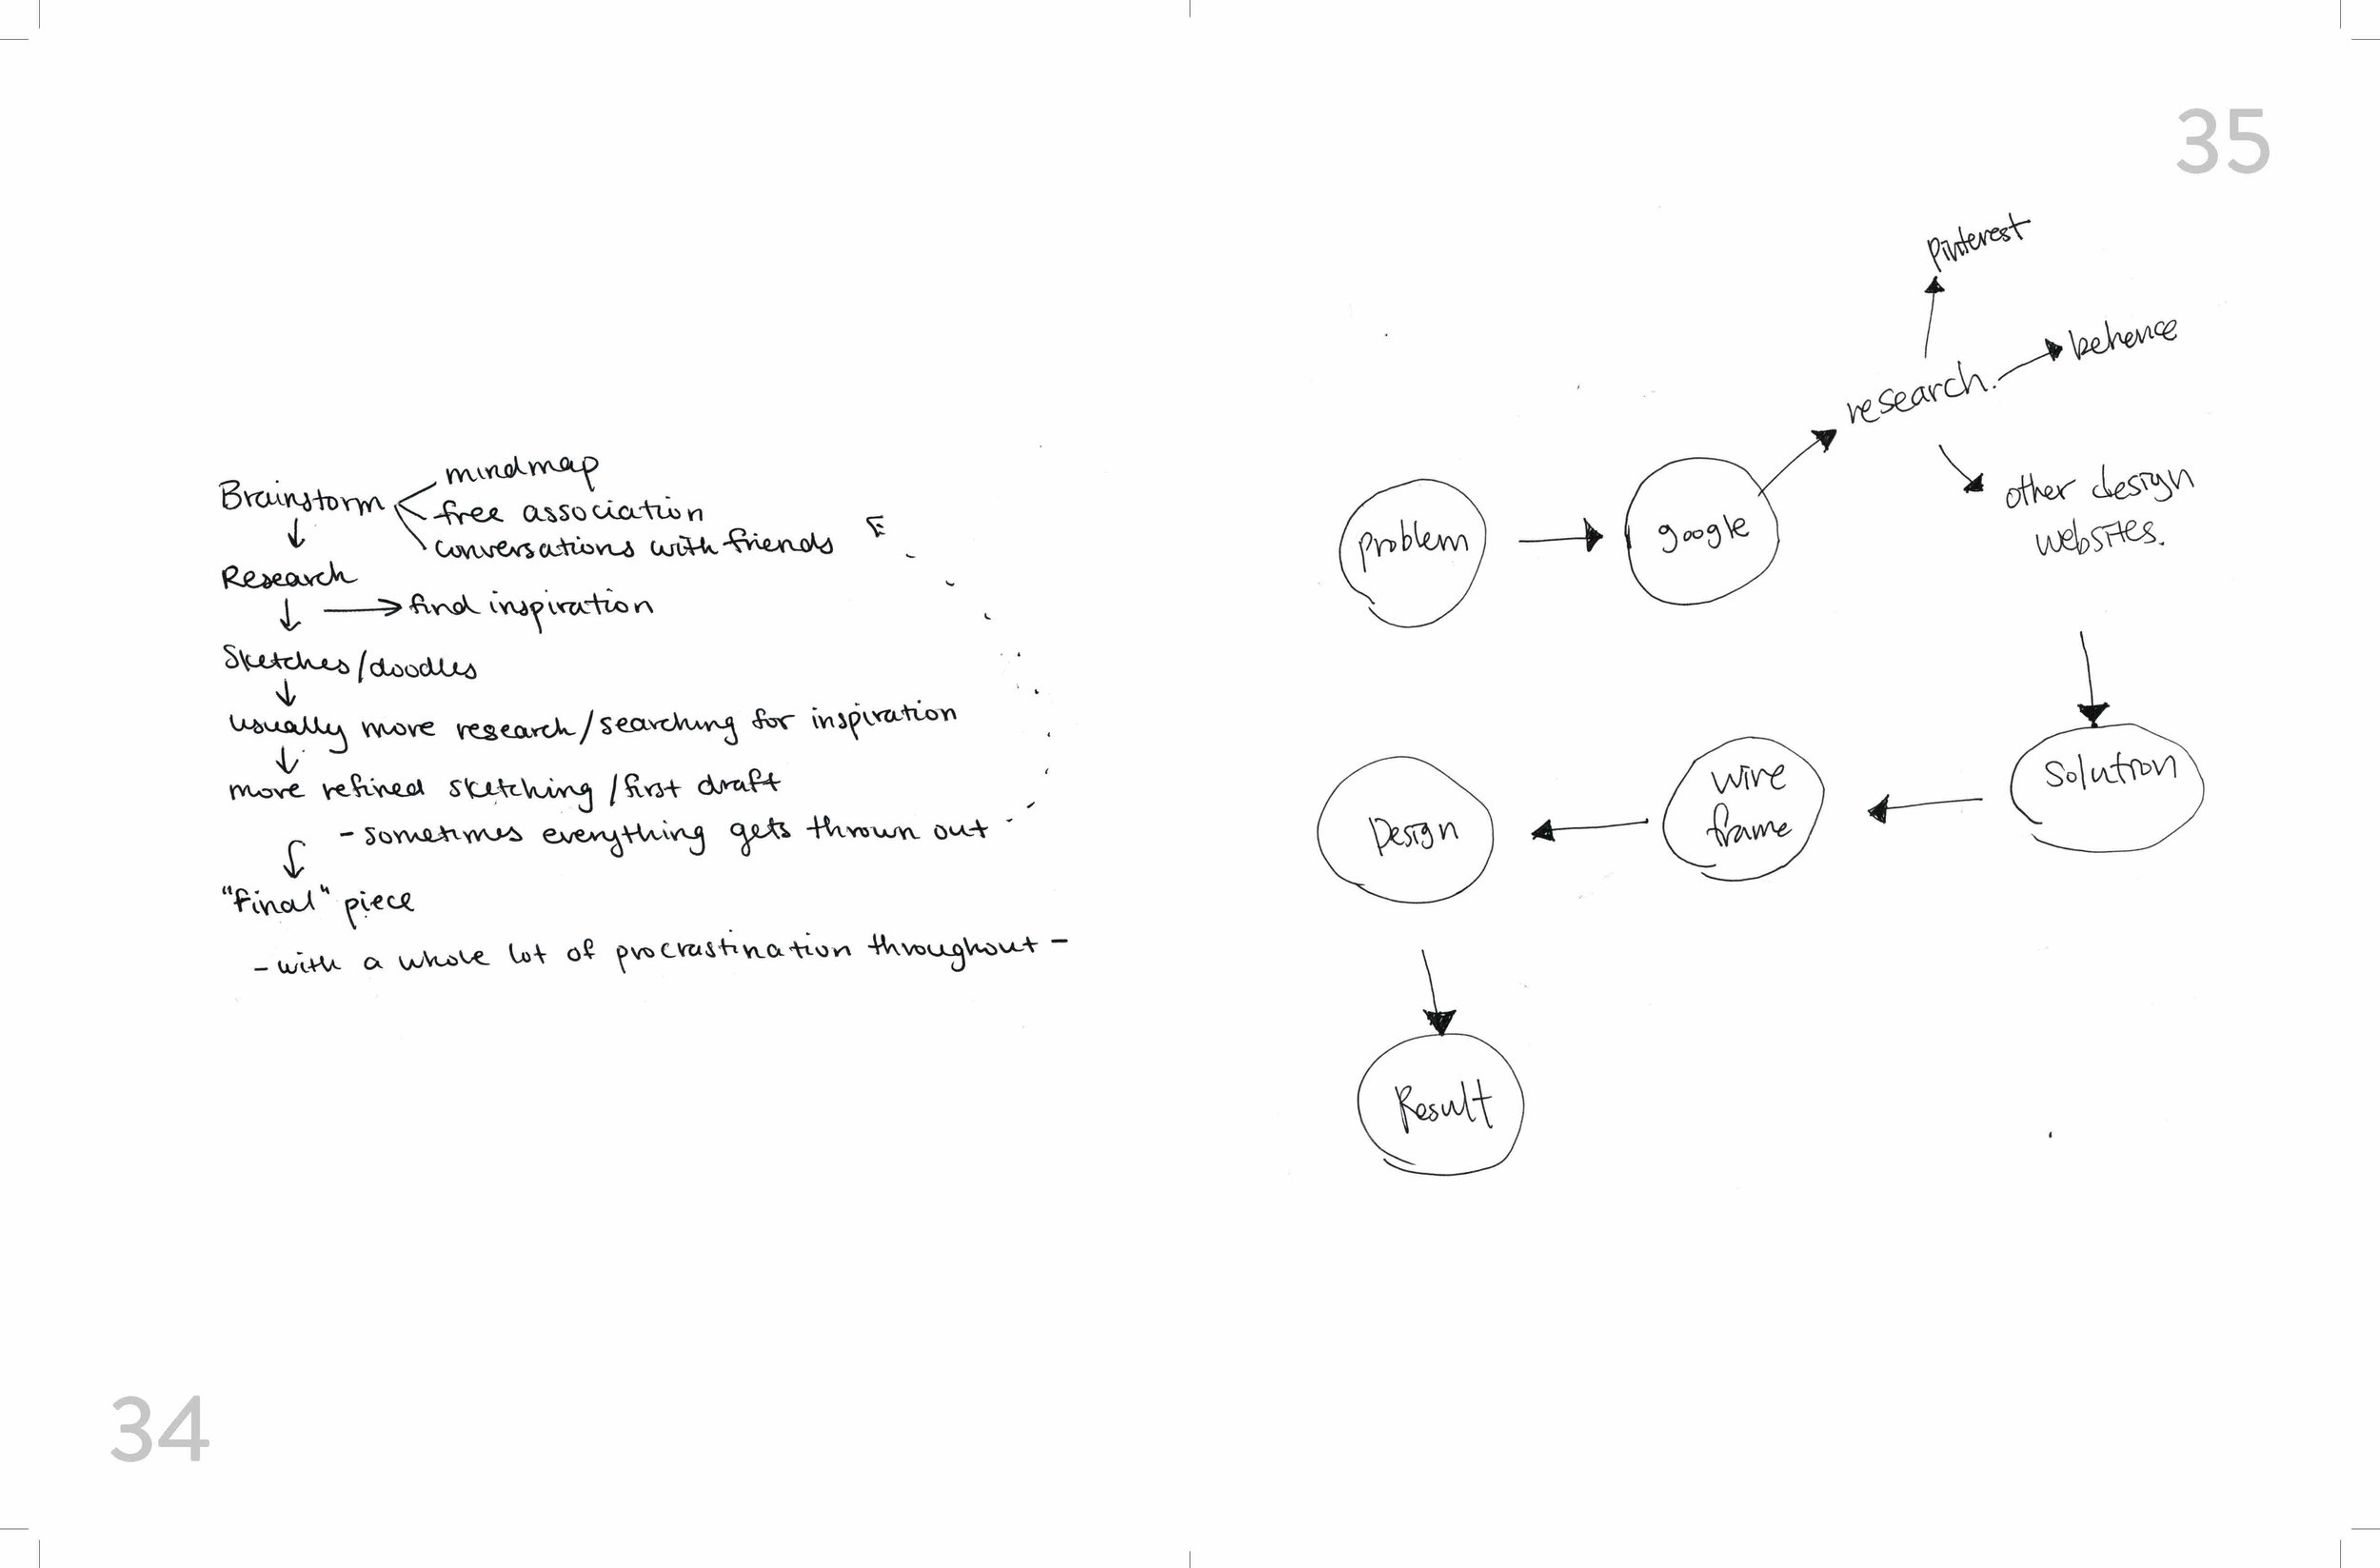 mindmap
Brainstorm
free association
conversations with friends
Research
find inspiration
Sketches/doodles
usually more research/searching for inspiration
more refined sketching/first draft
- sometimes everything gets thrown out
"final" piece
- with a whole lot of procrastination throughout -
34
35
pinterest
behence
research.
other design
websites.
problem
google
Solution
wire
frame
Design
Result